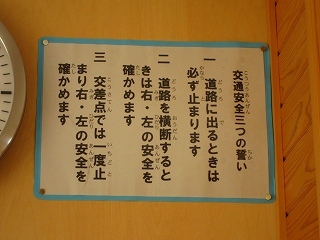 交通安全三つの誓い
一 道路に出るときは
必ず止まります
二 道路を横断すると
きは右・左の安全を
確かめます
三 交差点では一度止
まり右・左の安全を
確かめます